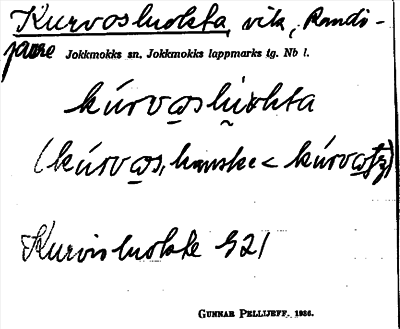 Kurvosluokta, vik, Randi-
jaure Jokkmokks sn. Jokkmokks lappmarks tg. Nb l.
kúrvo̱slu̮okta
(kúrvo̱s, kanske < kúrvo̱
Kurvisluokte G21
GUNNAR PELLIJEFF. 1936.